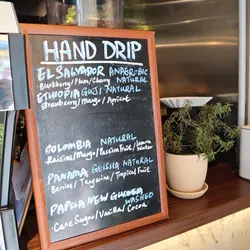 HAND DRIP
EL SALVADOR ANAEROBIC
NATURAL
-Blackberry/Plum/Cherry
ETHIOPIA GUJI NATURAL
-Strawberry/Mango/Apricot
COLOMBIA NATURAL
-Raisins/Mango/Passion Fruit/
PANAMA GEISHA NATURAL
-Berries/Tangerine/Tropical Fruit
PAPUA NEW GUINEA
WASHED
-Cane Sugar/Vanilla/Cocoa